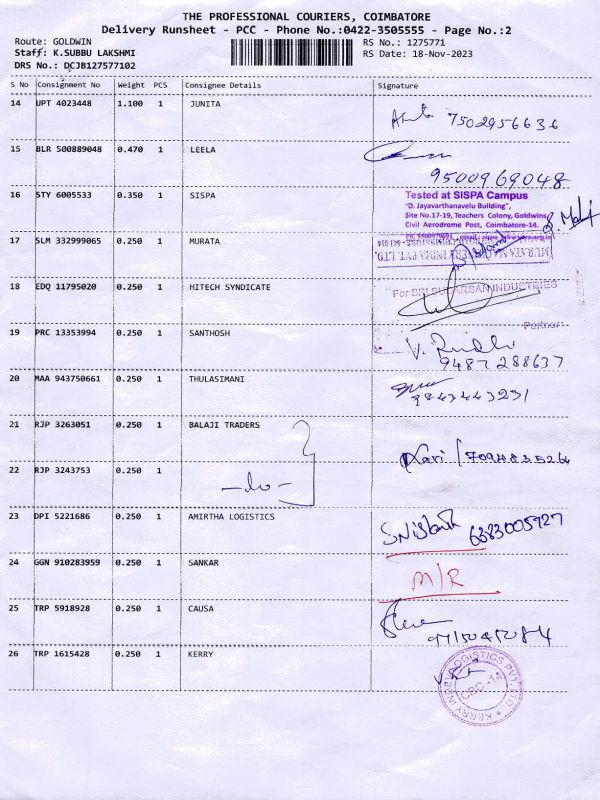 THE PROFESSIONAL COURIERS, COIMBATORE
Delivery Runsheet - PCC - Phone No.:0422-3505555 - Page No.:2
Route: GOLDWIN
Staff: K.SUBBU LAKSHMI
DRS No.: DCJB127577102
RS No.: 1275771
RS Date: 18-Nov-2023
S No Consignment No Weight PCS Consignee Details Signature
14 UPT 4023448 1.100 1 JUNITA
7502956636
15 BLR 500889048 0.470 1 LEELA
9500969048
16 STY 6005533 0.350 1 SISPA
Tested at SISPA Campus
"D. Jayavarthanavelu Building",
Site No.17-19, Teachers Colony, Goldwins
Civil Aerodrome Post, Coimbatore-14.
17 SLM 332999065 0.250 1 MURATA
18 EDQ 11795020 0.250 1 HITECH SYNDICATE
"For SRI SUDARSAN INDUSTRIES
Partner
19 PRC 13353994 0.250 1 SANTHOSH
9487288637
20 MAA 943750661 0.250 1 THULASIMANI
9843443231
21 RJP 3263051 0.250 1 BALAJI TRADERS
22 RJP 3243753 0.250 1
23 DPI 5221686 0.250 1 AMIRTHA LOGISTICS
6383005927
24 GGN 910283959 0.250 1 SANKAR
M/R
25 TRP 5918928 0.250 1 CAUSA
26 TRP 1615428 0.250 1 KERRY
CBC-14